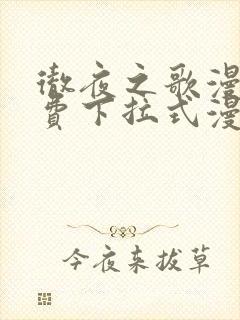 徹夜之歌漫
費下拉式漫
今夜来拔草